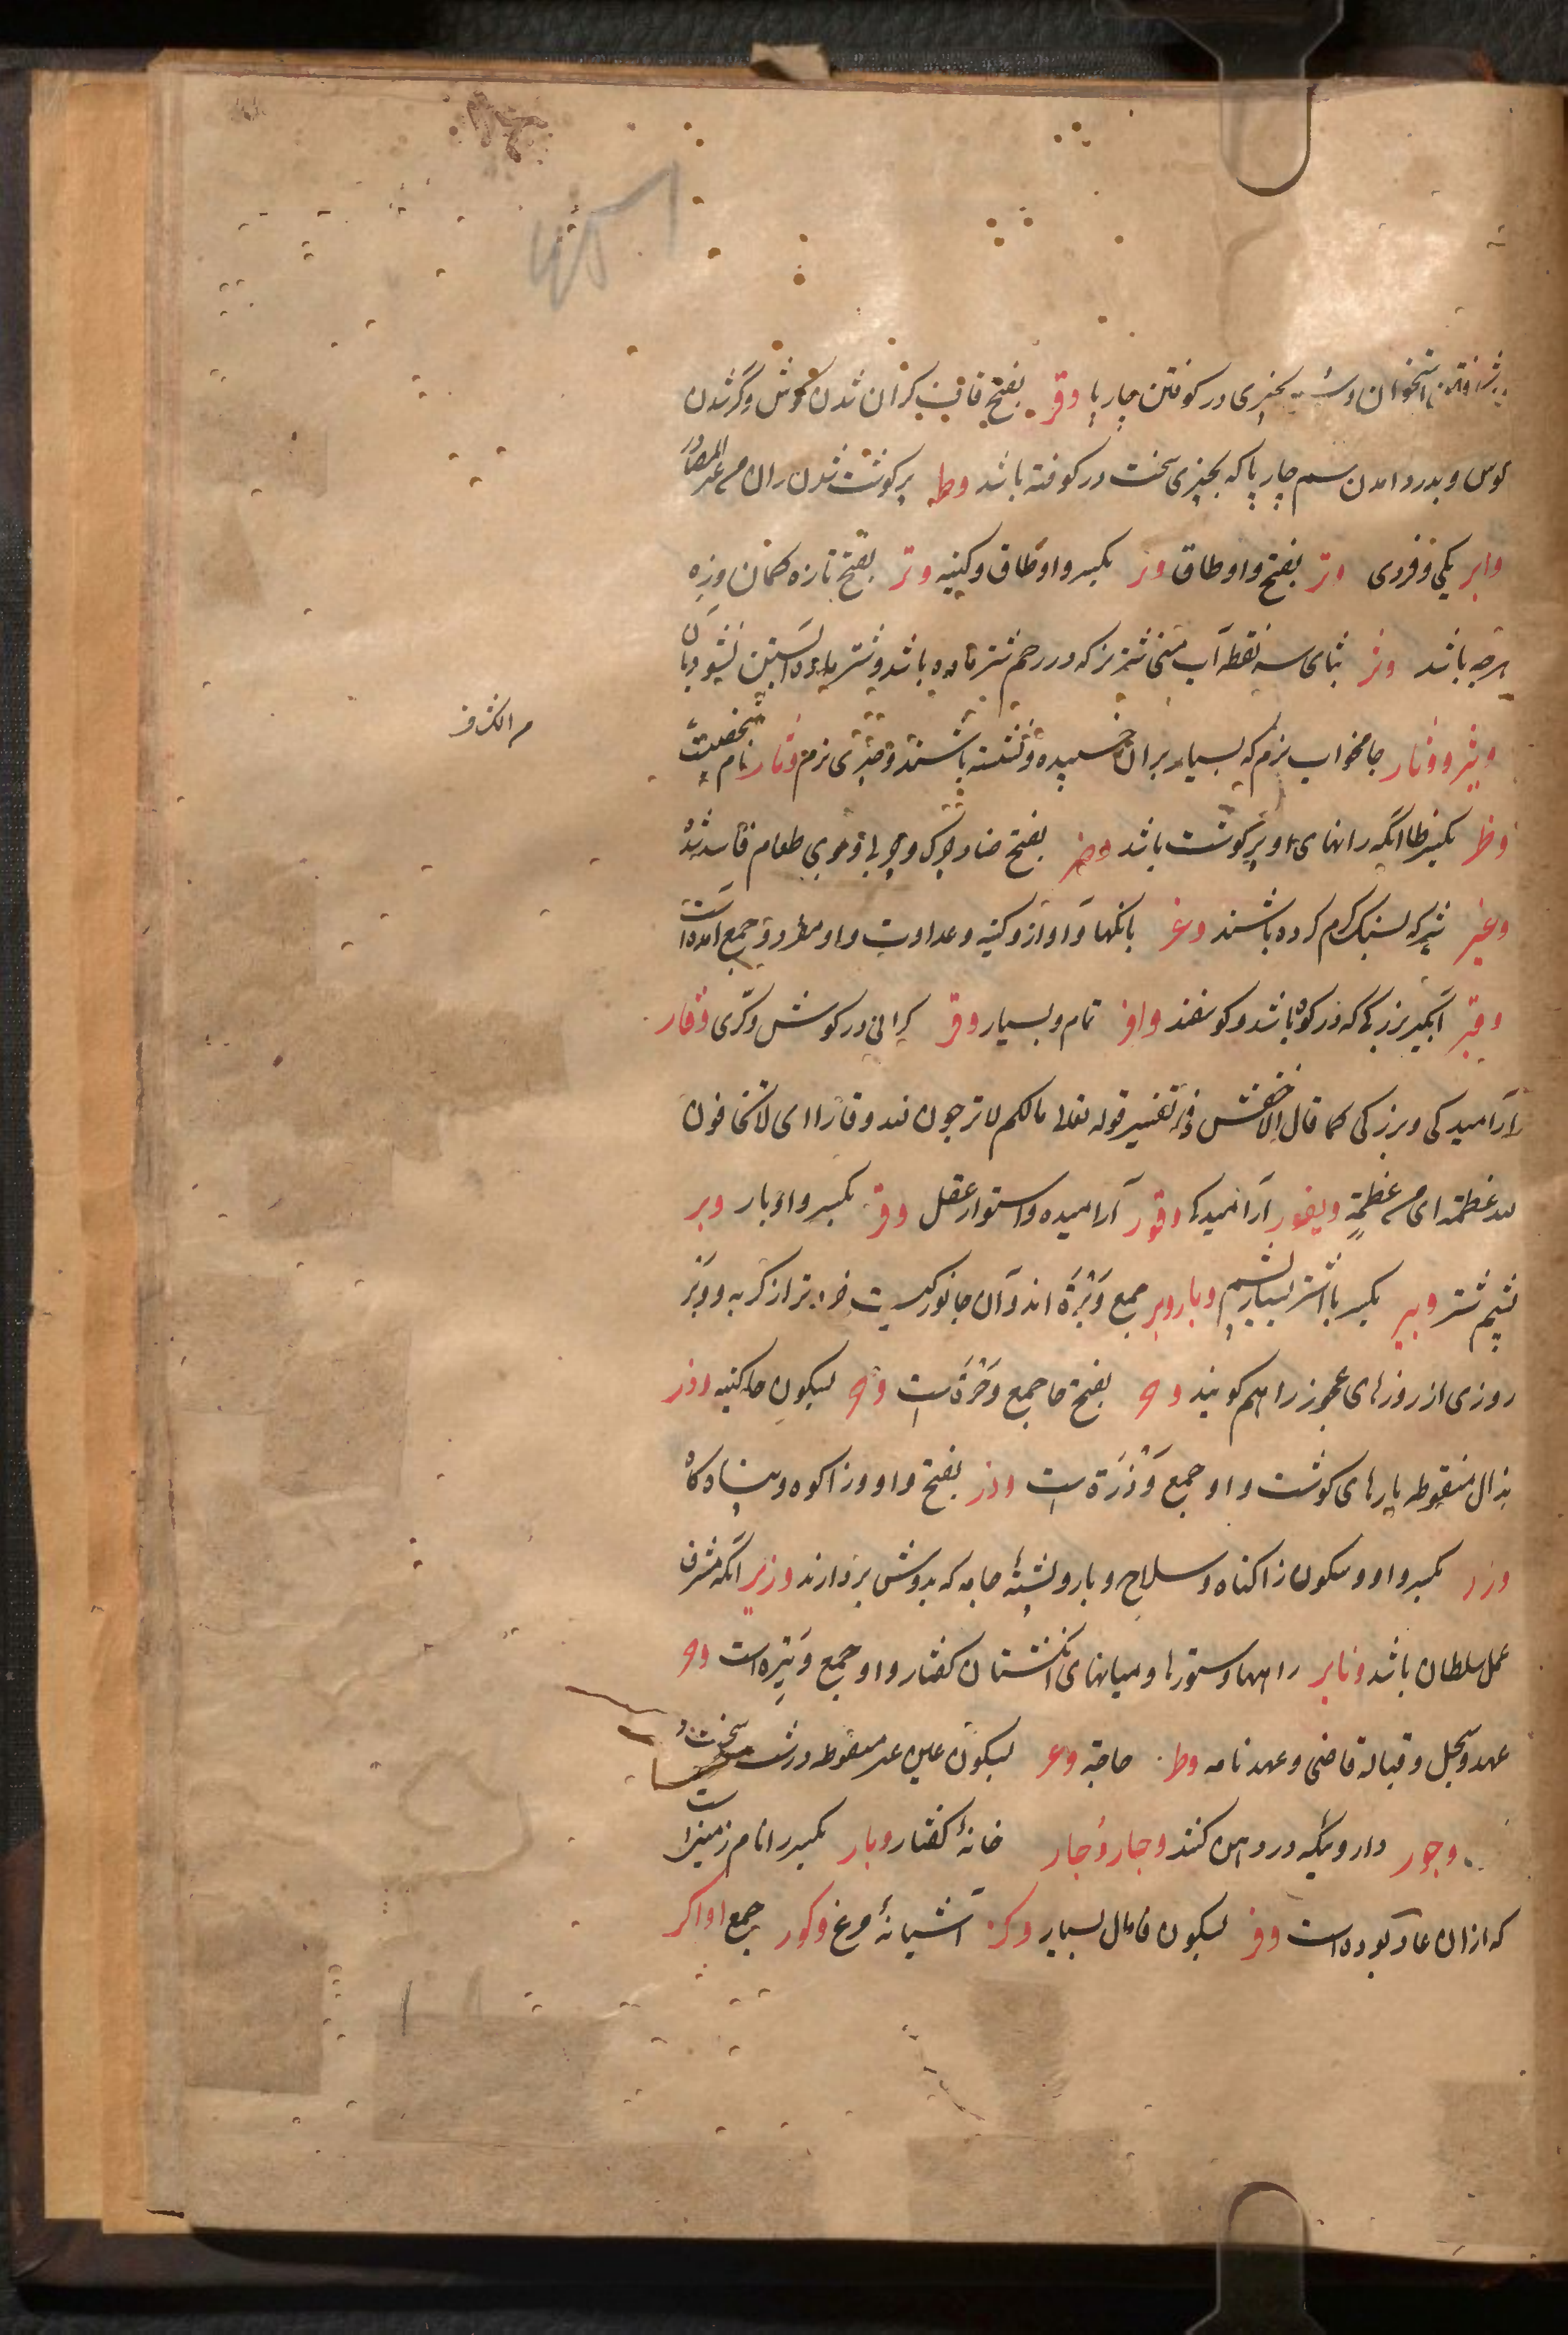 شکافتن استخوان و بچیزی درکوفتن چارپا وقر بفتح قاف کران شدن کوش و کر شدن
کوس و بدرد امدن سم چارپا که بچیزی سخت درکوفته باشد وطر پرکوشت شدن ران من غیر المصادر
وابر یکی و فردی وتر بفتح واو طاق وتر بکسر واو طاق و کینه وتر بفتح تا زه کمان وزه
هرچه باشد وثر بثای سه نقطه آب منی شتر نر که در رحم شتر ماده باشد و شتر ماده آبستن نشود بان
وثیر ووثار جامخواب نرم که بسیار بر ان خسپیده و نشسته باشند و چیزی نرم وثار نام شخصیست
وظر بکسر ظا انکه رانهای او پرکوشت باشد وضر بفتح ضاد چرک و چربی و بوی طعام فاسد شده
وغیر شیر که بسنک کرم کرده باشند وغر بانکها و اواز و کینه و عداوت و او مفرد و جمع امده است
وقیر آبکیر بزرک که در کوه باشد و کوسفند وافر تمام و بسیار وقر کرانی در کوش و کری وقار
آرامیدکی و بزرکی کما قال الاخفش فی تفسیر قوله تعالی مالکم لا ترجون لله وقارا ای لا تخافون
لله عظمة ای من عظمةٍ ویقور آرامیدکی وقور آرامیده و استوار عقل وقر بکسر واو بار وبر
پشم شتر وبر بکسر با شتر بسیار پشم وبار وبر جمع وَبْرَة اند و آن جانورکیست خردتر از کربه و وَبْر
روزی از روزهای عجوز را هم کویند وحر بفتح حا جمع وَحَرَة است وحر بسکون حا کینه وذر
بذال منقوطه پارهای کوشت و او جمع وَذْرَة است وزر بفتح واو و زا کوه و پناه کاه
وزر بکسر واو و سکون زا کناه و سلاح و بار و پشتهٔ جامه که بدوش بردارند وزیر انکه مشرف
عمل سلطان باشد وتایر راهها و ستورها و میانهای انکشتان کفتار و او جمع وَتیره است وصر
عهد و سجل و قباله قاضی و عهدنامه وطر حاجة وعر بسکون عین غیر منقوطه درشت و سخت
وجور دارو ییکه در دهن کنند وجار وُجار خانهٔ کفتار وبار بکسر را نام زمینیست
که از ان عاد بوده است وفر بسکون فا مال بسیار وکر آشیانهٔ مرغ وکور جمع اواکر
م الکنز ف